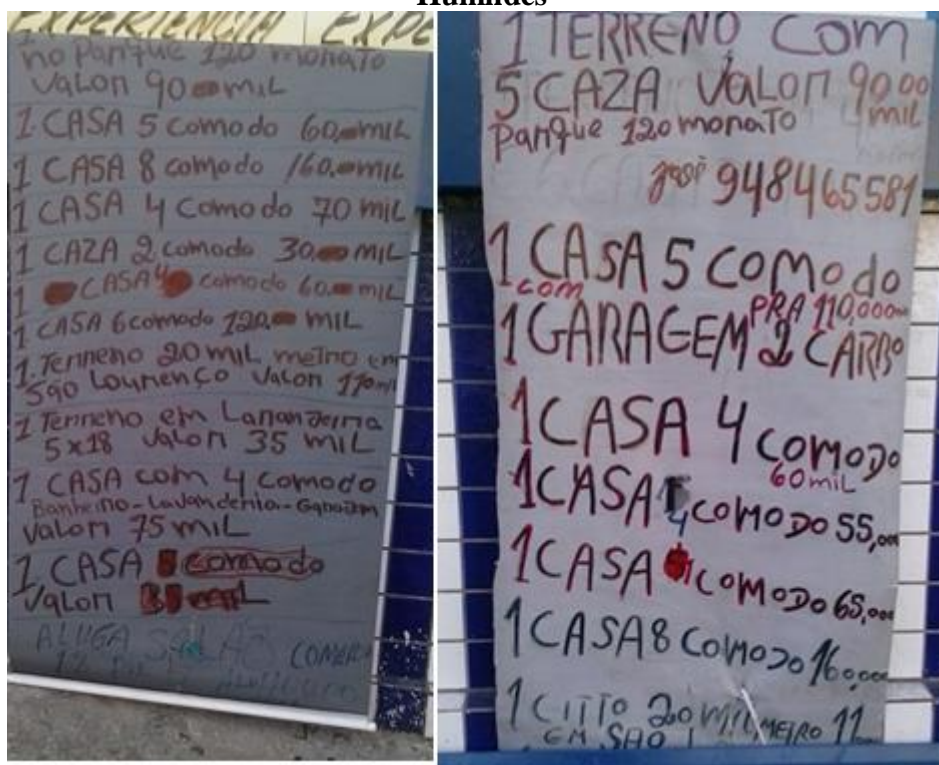 Humildes
EXPERIENCIA EXPE
no panque 120 monato
Valon 90 mil
1 CASA 5 comodo 60, mil
1 CASA 8 comodo 160. mil
1 CASA 4 comodo 70 mil
1 CAZA 2 comodo 30 mil
1 CASA 4 comodo 60. mil
1 CASA 6 comodo 120, MIL
1. Tenneno 20 mil metno em
São Lounenço Valon 110
1 Tenneno em
5x18 Valon 35 MIL
1 CASA com 4 comodo
Banheino-Lavandenia-
Valon 75 MIL
1 CASA comodo
Valon
ALUGA COMER
1 TERRENO COM
5 CAZA VALON 90,00
mil
Panque 120 monaTo
José 948465581
1 CASA 5 COMOdo
com PRA 110,000
1 GARAGEM 2 CARRO
1 CASA 4 COMODO
60 mil
1 CASA 4 COMODO 55,000
1 CASA COMODO 65,000
1 CASA 8 COMODO 160,000
1 CITTO 20 MIL METRO 11
EM SAO